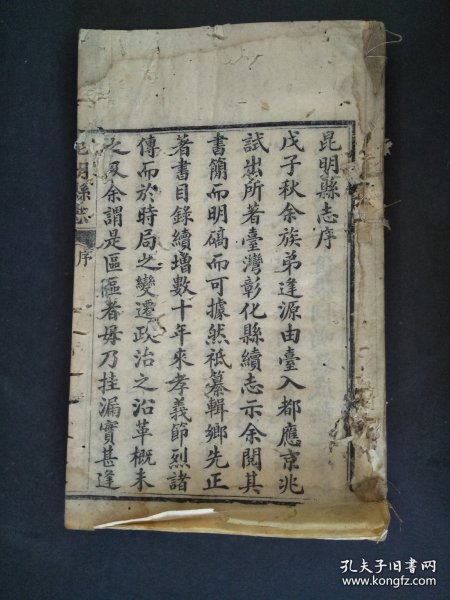 昆明縣志序
戊子秋余族弟逢源由臺入都應京兆
試出所著臺灣彰化縣續志示余閱其
書簡而明碻而可據然祗纂輯鄉先正
著書目錄續增數十年來孝義節烈諸
傳而於時局之變遷政治之沿革概未
之及余謂是區區者毋乃挂漏實甚逢
昆明縣志
序
孔夫子旧书网
www.kongfz.com